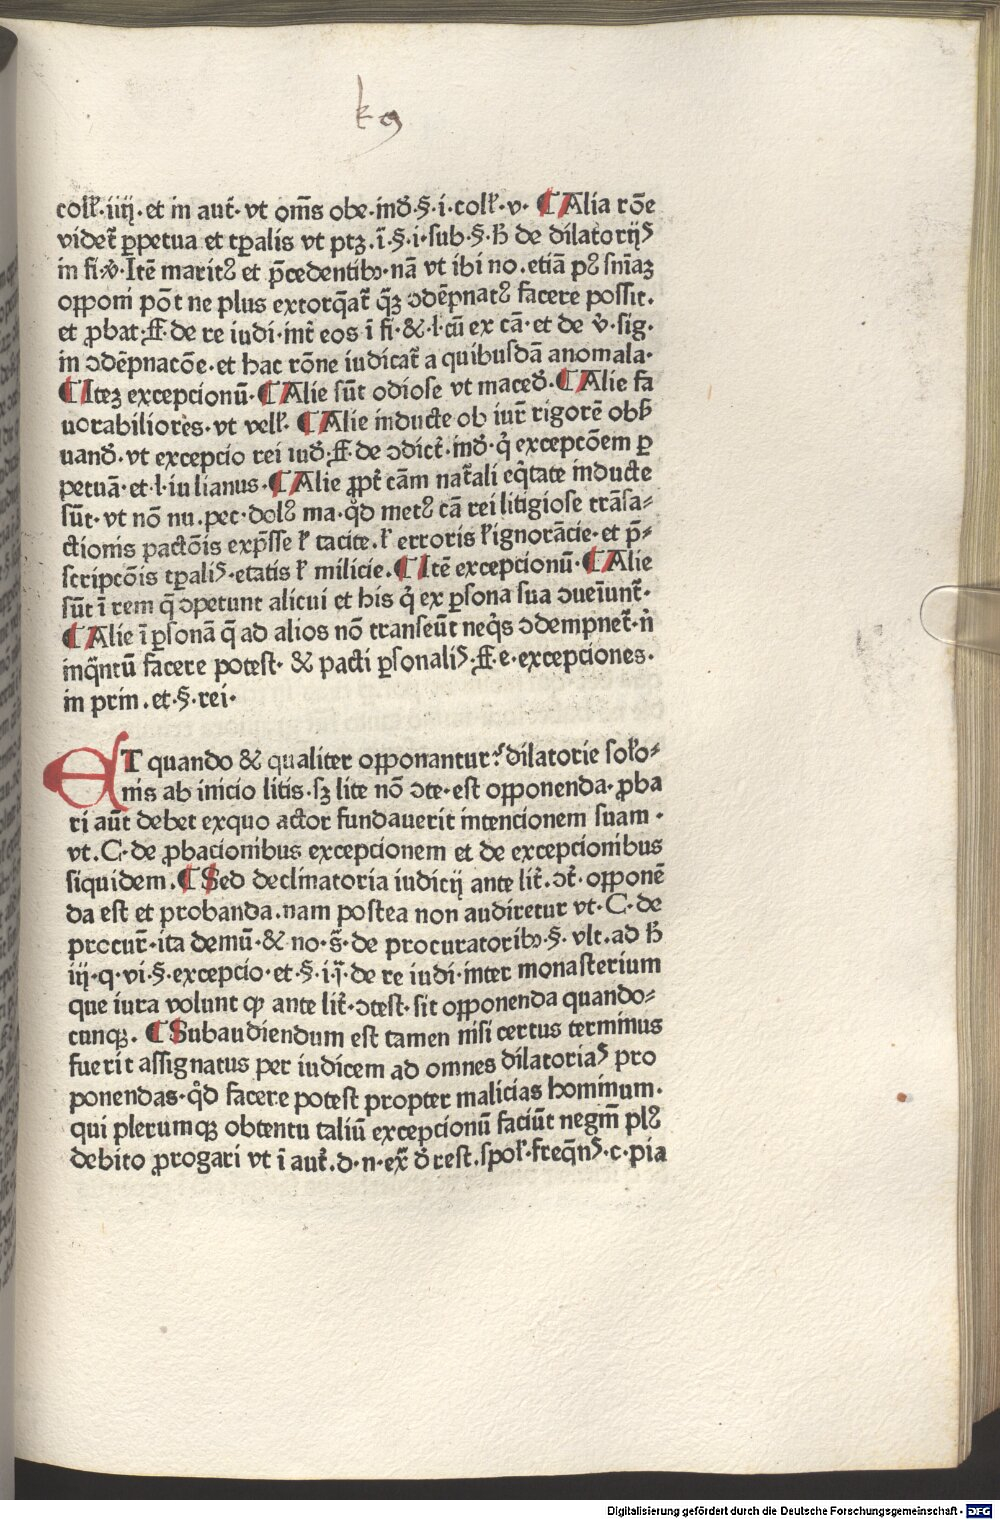 k 9
coll̃·iiij·et in aut̃·vt om̃s obe·ind̃·§·i·coll̃·v· ¶Alia rõe
videt̃ ꝑpetua et tꝑalis vt ptꝫ·ĩ·§·i·sub·§·h̃ de dilatorijs
in fi·v̾·Itẽ maritꝰ et p̃cedentibꝰ·nã vt ibi no·etiã pꝰ sñiaꝫ
opponi põt ne plus extorq̃at̃ q̃ꝫ ↄdẽpnatꝰ facere possit·
et ꝓbat·ff·de re iudi·int̃ eos ĩ fi·&·l·cũ ex cã·et de v̾·sig·
in ↄdẽpnacõe·et hac rõne iudicat̃ a quibusdã anomala·
¶Iteꝫ excepcionũ·¶Alie sũt odiose vt maced̃·¶Alie fa
uorabiliores·vt vell̃·¶Alie inducte ob iur̃ rigorẽ obß
uand̃·vt excepcio rei iud̃·ff·de ↄdict̃·ind̃·q̇ excepcõem ꝑ
petuã·et·l·iulianus·¶Alie ꝓpt̃ cãm nat̃ali eq̇tate inducte
sũt·vt nõ nu·pec·dolꝰ ma·qd̃ metꝰ cã rei litigiose trãsa⸗
ctionis pactõis exp̃sse l̃ tacite·l̃ erroris l̃ ignorãcie·et p̃⸗
scripcõis tꝑalis·etatis l̃ milicie·¶Itẽ excepcionũ·¶Alie
sũt ĩ rem q̃ ↄpetunt alicui et his q̇ ex ꝑsona sua ↄueĩunt̃·
¶Alie ĩ ꝑsonã q̃ ad alios nõ transeũt neq̇s ↄdempnet̃·ṅ
inq̃ntũ facere potest·&pacti ꝑsonalis·ff·e·excepciones·
in prin·et·§·rei·
ET quando & qualiter opponantur? dilatorie solõ⸗
nis ab inicio litis·sꝫ lite nõ ↄte·est opponenda·ꝓba
ri aũt debet exquo actor fundauerit intencionem suam·
vt·C·de ꝓbacionibus excepcionem et de excepcionibus
siquidem·¶Sed declinatoria iudicij ante lit̃·ↄt̃·opponẽ
da est et probanda·nam postea non audiretur vt·C·de
procur̃·ita demũ·&no·s̃·de procuratoribꝰ·§·vlt·ad h̃
iij·q·vi·§·excepcio·et·§·i·ij·de re iudi·inter monasterium
que iura volunt ꝙ ante lit̃·ↄtest·sit opponenda quando⸗
cunqꝫ·¶Subaudiendum est tamen nisi certus terminus
fuerit assignatus per iudicem ad omnes dilatorias pro
ponendas·qd̃ facere potest propter malicias hominum·
qui plerumqꝫ obtentu taliũ excepcionũ faciũt negm̃ plꝰ
debito ꝓrogari vt ĩ aut̃·d·n·ex̃ d̃ rest·spol̃·freq̃ns·c·pia
Digitalisierung gefördert durch die Deutsche Forschungsgemeinschaft - DFG